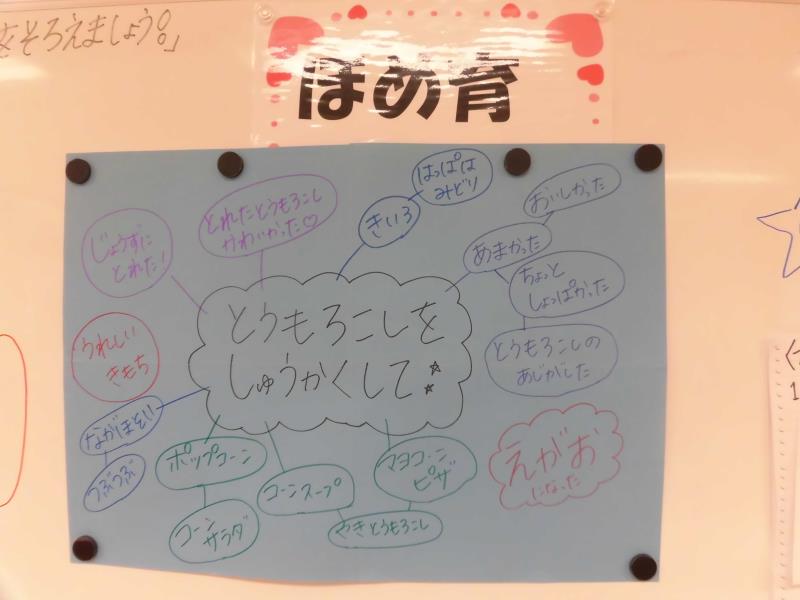 をそろえましょう。」
ほめ育
とうもろこしを
しゅうかくして!
じょうずに
とれた!
とれたとうもろこし
かわいかった♡
きいろ
はっぱは
みどり
あまかった
おいしかった
ちょっと
しょっぱかった
とうもろこしの
あじがした
うれしい
きもち
ながほそい
つぶつぶ
ポップコーン
コーン
サラダ
コーンスープ
やきとうもろこし
マヨコーン
ピザ
えがお
になった